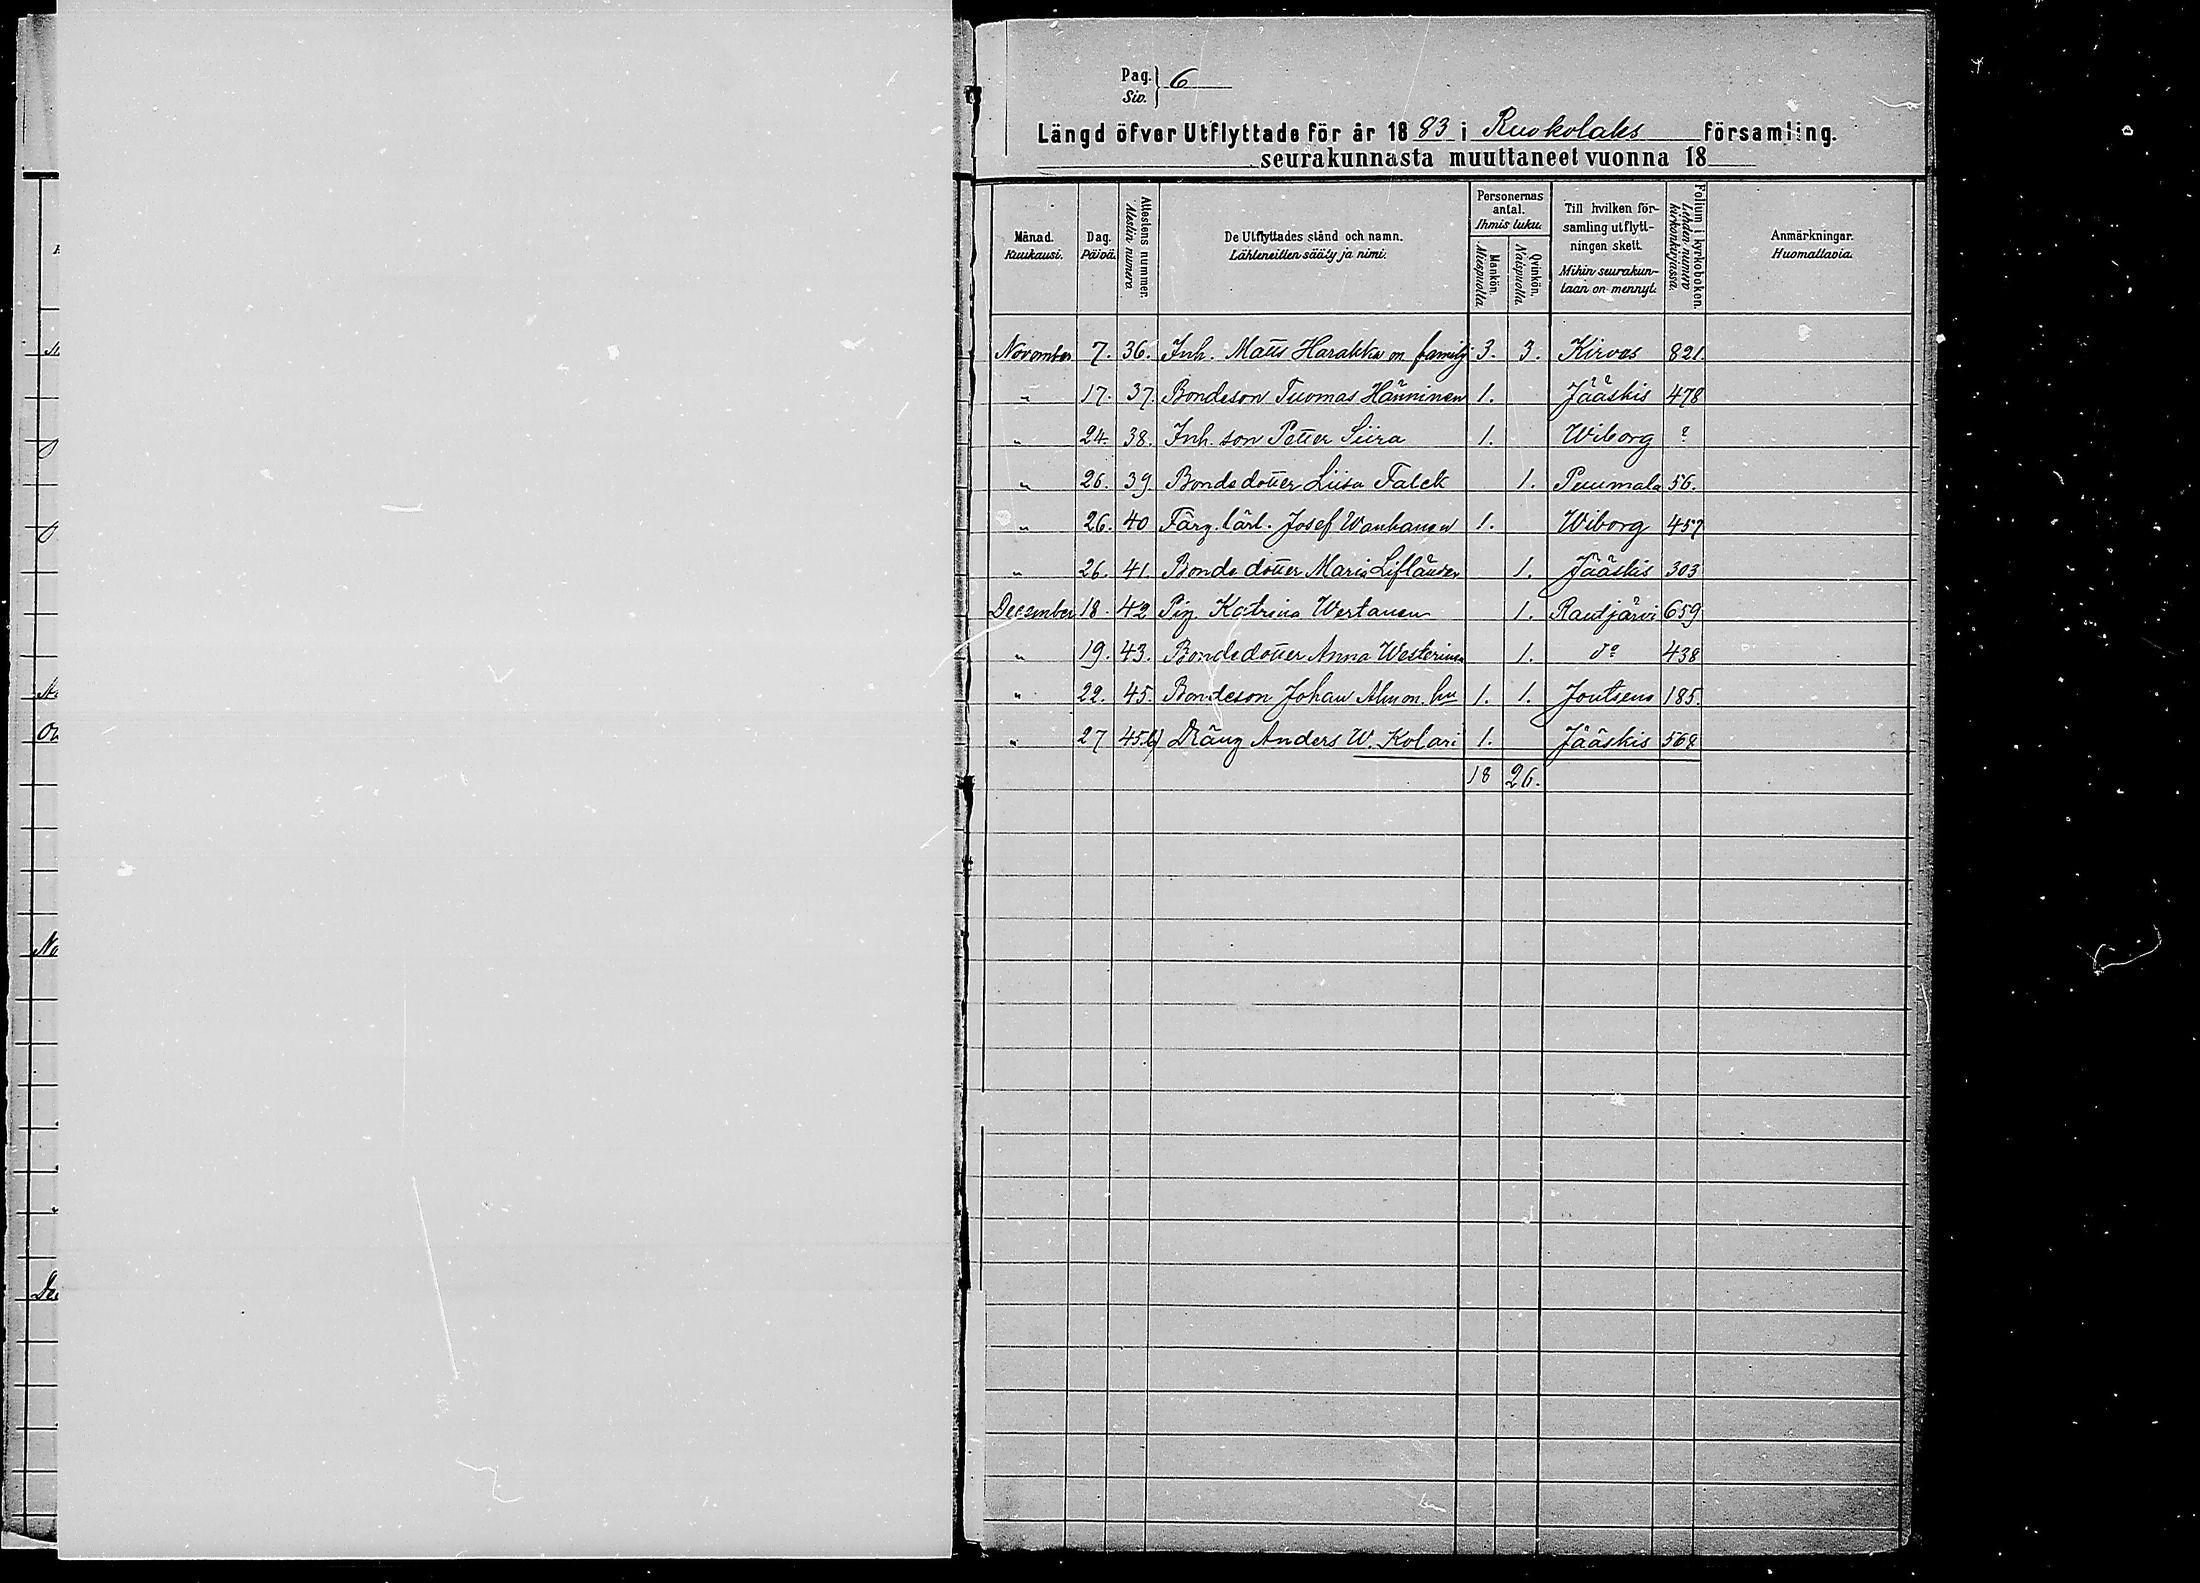 Pag. } 6
Siv.
Längd öfver Utflyttade för år 18 83 i Ruokolaks församling.
seurakunnasta muuttaneet vuonna 18
Månad. Kuukausi. Dag. Päivä. Attestens nummer. Alestin numera De Utflyttades stånd och namn. Lähteneitten sääty ja nimi. Personernas antal. Ihmis luku. Mankön. Miespuolia. Qvinkön. Naispuolia. Till hvilken församling utflyttningen skett. Mihin seurakuntaan on mennyt. Folium i kyrkoboken. Lehden numero kirkonkirjassa. Anmärkningar. Huomattavia.
November 7. 36. Inh. Matts Harakka m familj 3. 3. Kirvos 821.
" 17. 37. Bondeson Tuomas Hänninen 1. Jääskis 478
" 24. 38. Inh. son Petter Siira 1. Wiborg ?
" 26. 39. Bondedotter Liisa Falck 1. Puumala 56.
" 26. 40 Färg. lärl. Josef Wanhanen 1. Wiborg 457
" 26. 41. Bondedotter Maria Lifländer 1. Jääskis 303
December 18. 42 Pig. Katrina Wertanen 1. Rautjärvi 659
" 19. 43. Bondedotter Anna Westerinen 1. do 438
" 22. 45. Bondeson Johan Alm m. hu 1. 1. Joutseno 185.
" 27 45.b) Dräng Anders W. Kolari 1. Jääskis 568
18 26.